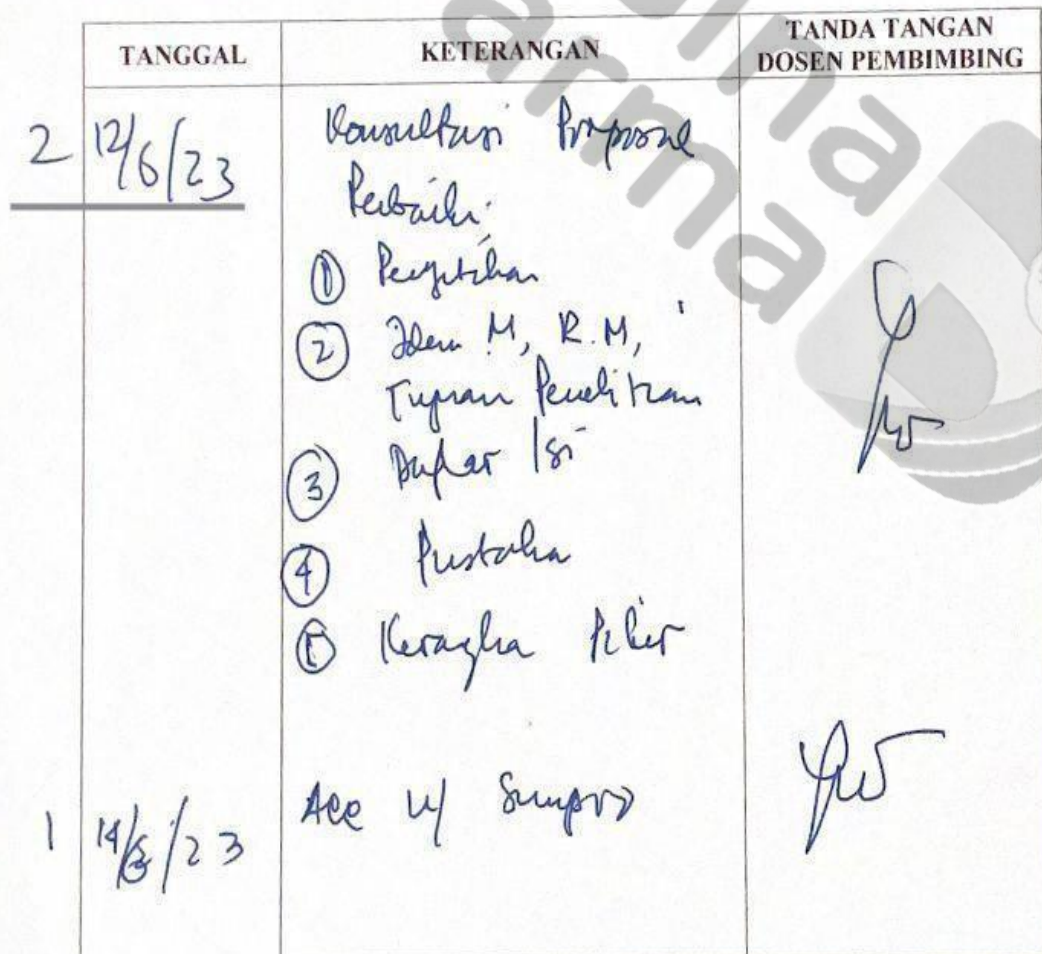 TANGGAL KETERANGAN TANDA TANGAN
DOSEN PEMBIMBING
2 12/6/23 Konsultasi Proposal
Perbaiki:
① Pengetikan
② Iden M, R.M,
Tujuan Penelitian
③ Daftar Isi
④ Pustaka
⑤ Kerangka Pikir
1 14/6/23 Acc u/ Sempro
ina
arma